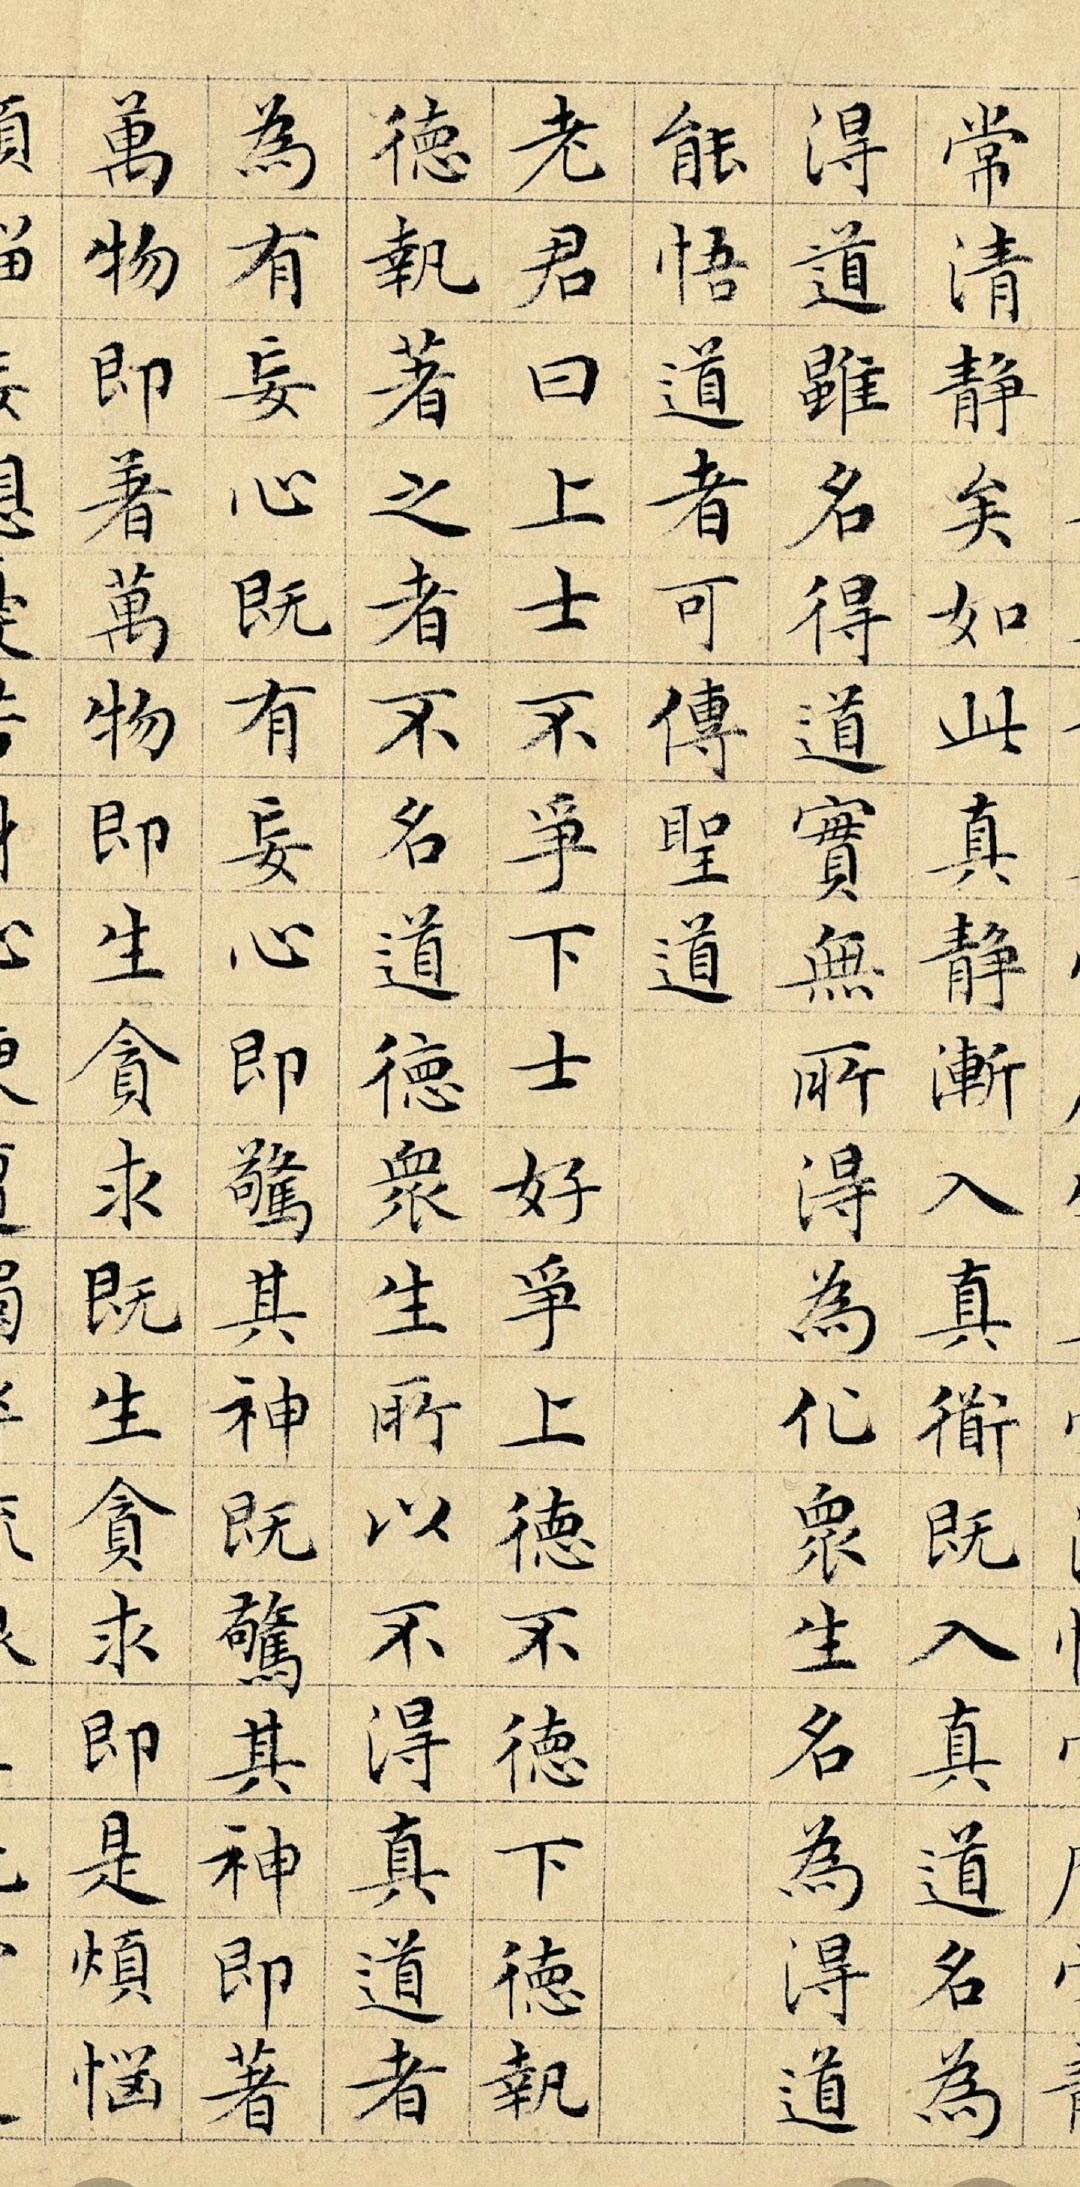 常清静矣如此真静漸入真衜既入真道名為
得道雖名得道實無所得為化眾生名為得道
能悟道者可傳聖道
老君曰上士不爭下士好爭上德不德下德執
德執著之者不名道德眾生所以不得真道者
為有妄心既有妄心即驚其神既驚其神即著
萬物即著萬物即生貪求既生貪求即是煩惱